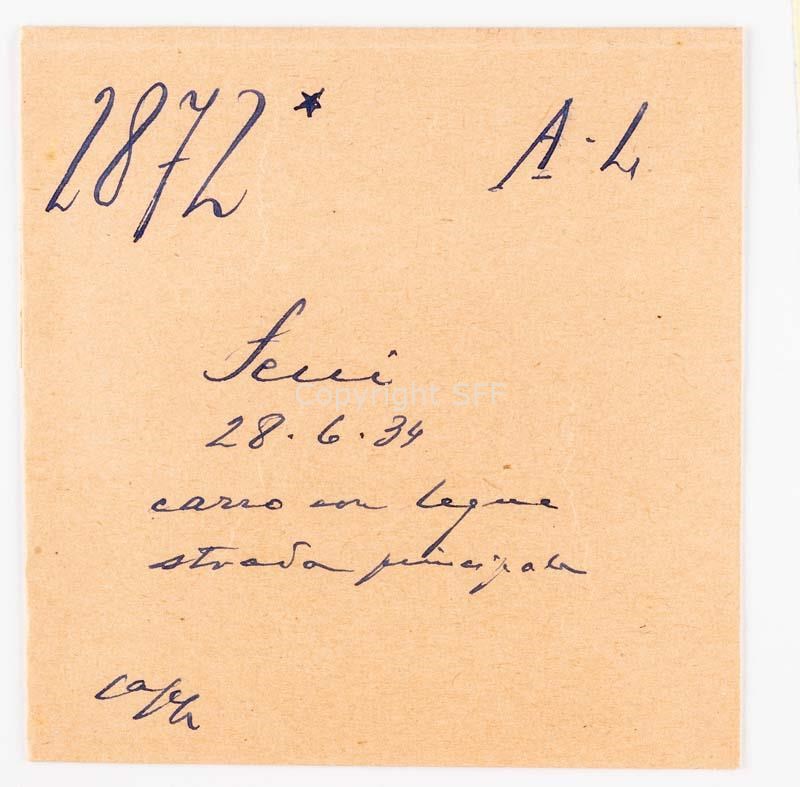 2872* A-L
Seui
Copyright SFF
28.6.34
carro con legne
strada principale